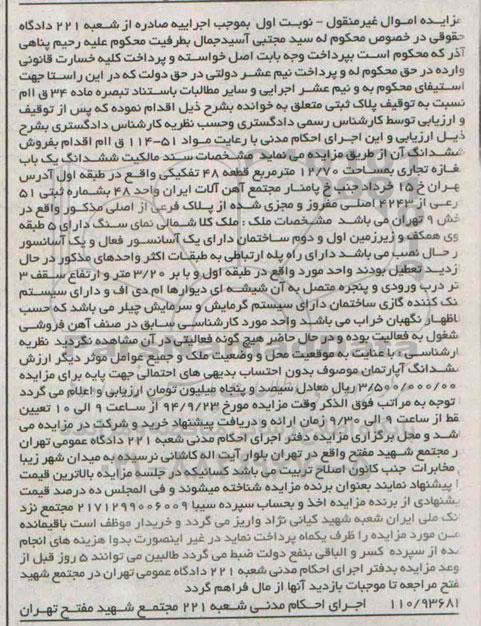 مزایده اموال غیرمنقول - نوبت اول بموجب اجراییه صادره از شعبه ۲۲۱ دادگاه
حقوقی در خصوص محکوم له سید مجتبی آسیدجمال بطرفیت محکوم علیه رحیم پناهی
آذر که محکوم است بپرداخت وجه بابت اصل خواسته و پرداخت کلیه خسارت قانونی
وارده در حق محکوم له و پرداخت نیم عشر دولتی در حق دولت که در این راستا جهت
استیفای محکوم به و نیم عشر اجرایی و سایر مطالبات باستناد تبصره ماده ۳۴ ق اام
نسبت به توقیف پلاک ثبتی متعلق به خوانده بشرح ذیل اقدام نموده که پس از توقیف
و ارزیابی توسط کارشناس رسمی دادگستری وحسب نظریه کارشناس دادگستری بشرح
ذیل ارزیابی و این اجرای احکام مدنی با رعایت مواد ۵۱-۱۱۴ ق اام اقدام بفروش
ششدانگ آن از طریق مزایده می نماید مشخصات سند مالکیت ششدانگ یک باب
غازه تجاری بمساحت ۱۲/۷۰ مترمربع قطعه ۴۸ تفکیکی واقع در طبقه اول آدرس
هران خ ۱۵ خرداد جنب خ پامنار مجتمع آهن آلات ایران واحد ۴۸ بشماره ثبتی ۵۱
رعی از ۴۲۴۳ اصلی مفروز و مجزی شده از پلاک فرعی از اصلی مذکور واقع در
خش ۹ تهران می باشد مشخصات ملک : ملک کلا شمالی نمای سنگ دارای ۵ طبقه
وی همکف و زیرزمین اول و دوم ساختمان دارای یک آسانسور فعال و یک آسانسور
ر حال نصب می باشد دارای راه پله ارتباطی به طبقات اکثر واحدهای مذکور در حال
زدید تعطیل بودند واحد مورد واقع در طبقه اول و با بر ۳/۲۰ متر و ارتفاع سقف ۳
تر درب ورودی و پنجره متصل به آن شیشه ای دیوارها ام دی اف و دارای سیستم
نک کننده گازی ساختمان دارای سیستم گرمایش و سرمایش چیلر می باشد که حسب
اظهار نگهبان خراب می باشد واحد مورد کارشناسی سابق در صنف آهن فروشی
شغول به فعالیت بوده و در حال حاضر هیچ گونه فعالیتی در آن مشاهده نگردید نظریه
ارشناسی : با عنایت به موقعیت محل و وضعیت ملک و جمیع عوامل موثر دیگر ارزش
شدانگ آپارتمان موصوف بدون احتساب بدیهی های احتمالی جهت پایه برای مزایده
۳/۵۰۰/۰۰۰/۰۰ ریال معادل سیصد و پنجاه میلیون تومان ارزیابی و اعلام می گردد
ا توجه به مراتب فوق الذکر وقت مزایده مورخ ۹۴/۹/۲۳ از ساعت ۹ الی ۱۰ تعیین
قط از ساعت ۹ الی ۹/۳۰ زمان ارائه و دریافت پیشنهاد خرید و شرکت در مزایده می
اشد و محل برگزاری مزایده دفتر اجرای احکام مدنی شعبه ۲۲۱ دادگاه عمومی تهران
ر مجتمع شهید مفتح واقع در تهران بلوار آیت اله کاشانی نرسیده به میدان شهر زیبا
مخابرات جنب کانون اصلاح تربیت می باشد کسانیکه در جلسه مزایده بالاترین قیمت
ا پیشنهاد نمایند بعنوان برنده مزایده شناخته میشوند و فی المجلس ده درصد قیمت
یشنهادی از برنده مزایده اخذ و بحساب سپرده سیبا ۲۱۷۱۲۹۹۰۰۶۰۰۹ مجتمع نزد
انک ملی ایران شعبه شهید کیانی نژاد واریز می گردد و خریدار موظف است باقیمانده
من مورد مزایده را ظرف یکماه پرداخت نماید در غیر اینصورت بدوا هزینه های انجام
ده از سپرده کسر و الباقی بنفع دولت ضبط می گردد طالبین می توانند ۵ روز قبل از
وعد مزایده بدفتر اجرای احکام مدنی شعبه ۲۲۱ دادگاه عمومی تهران در مجتمع شهید
فتح مراجعه تا موجبات بازدید آنها از مال فراهم گردد
۱۱۰/۹۳۶۸۱ اجرای احکام مدنی شعبه ۲۲۱ مجتمع شهید مفتح تهران